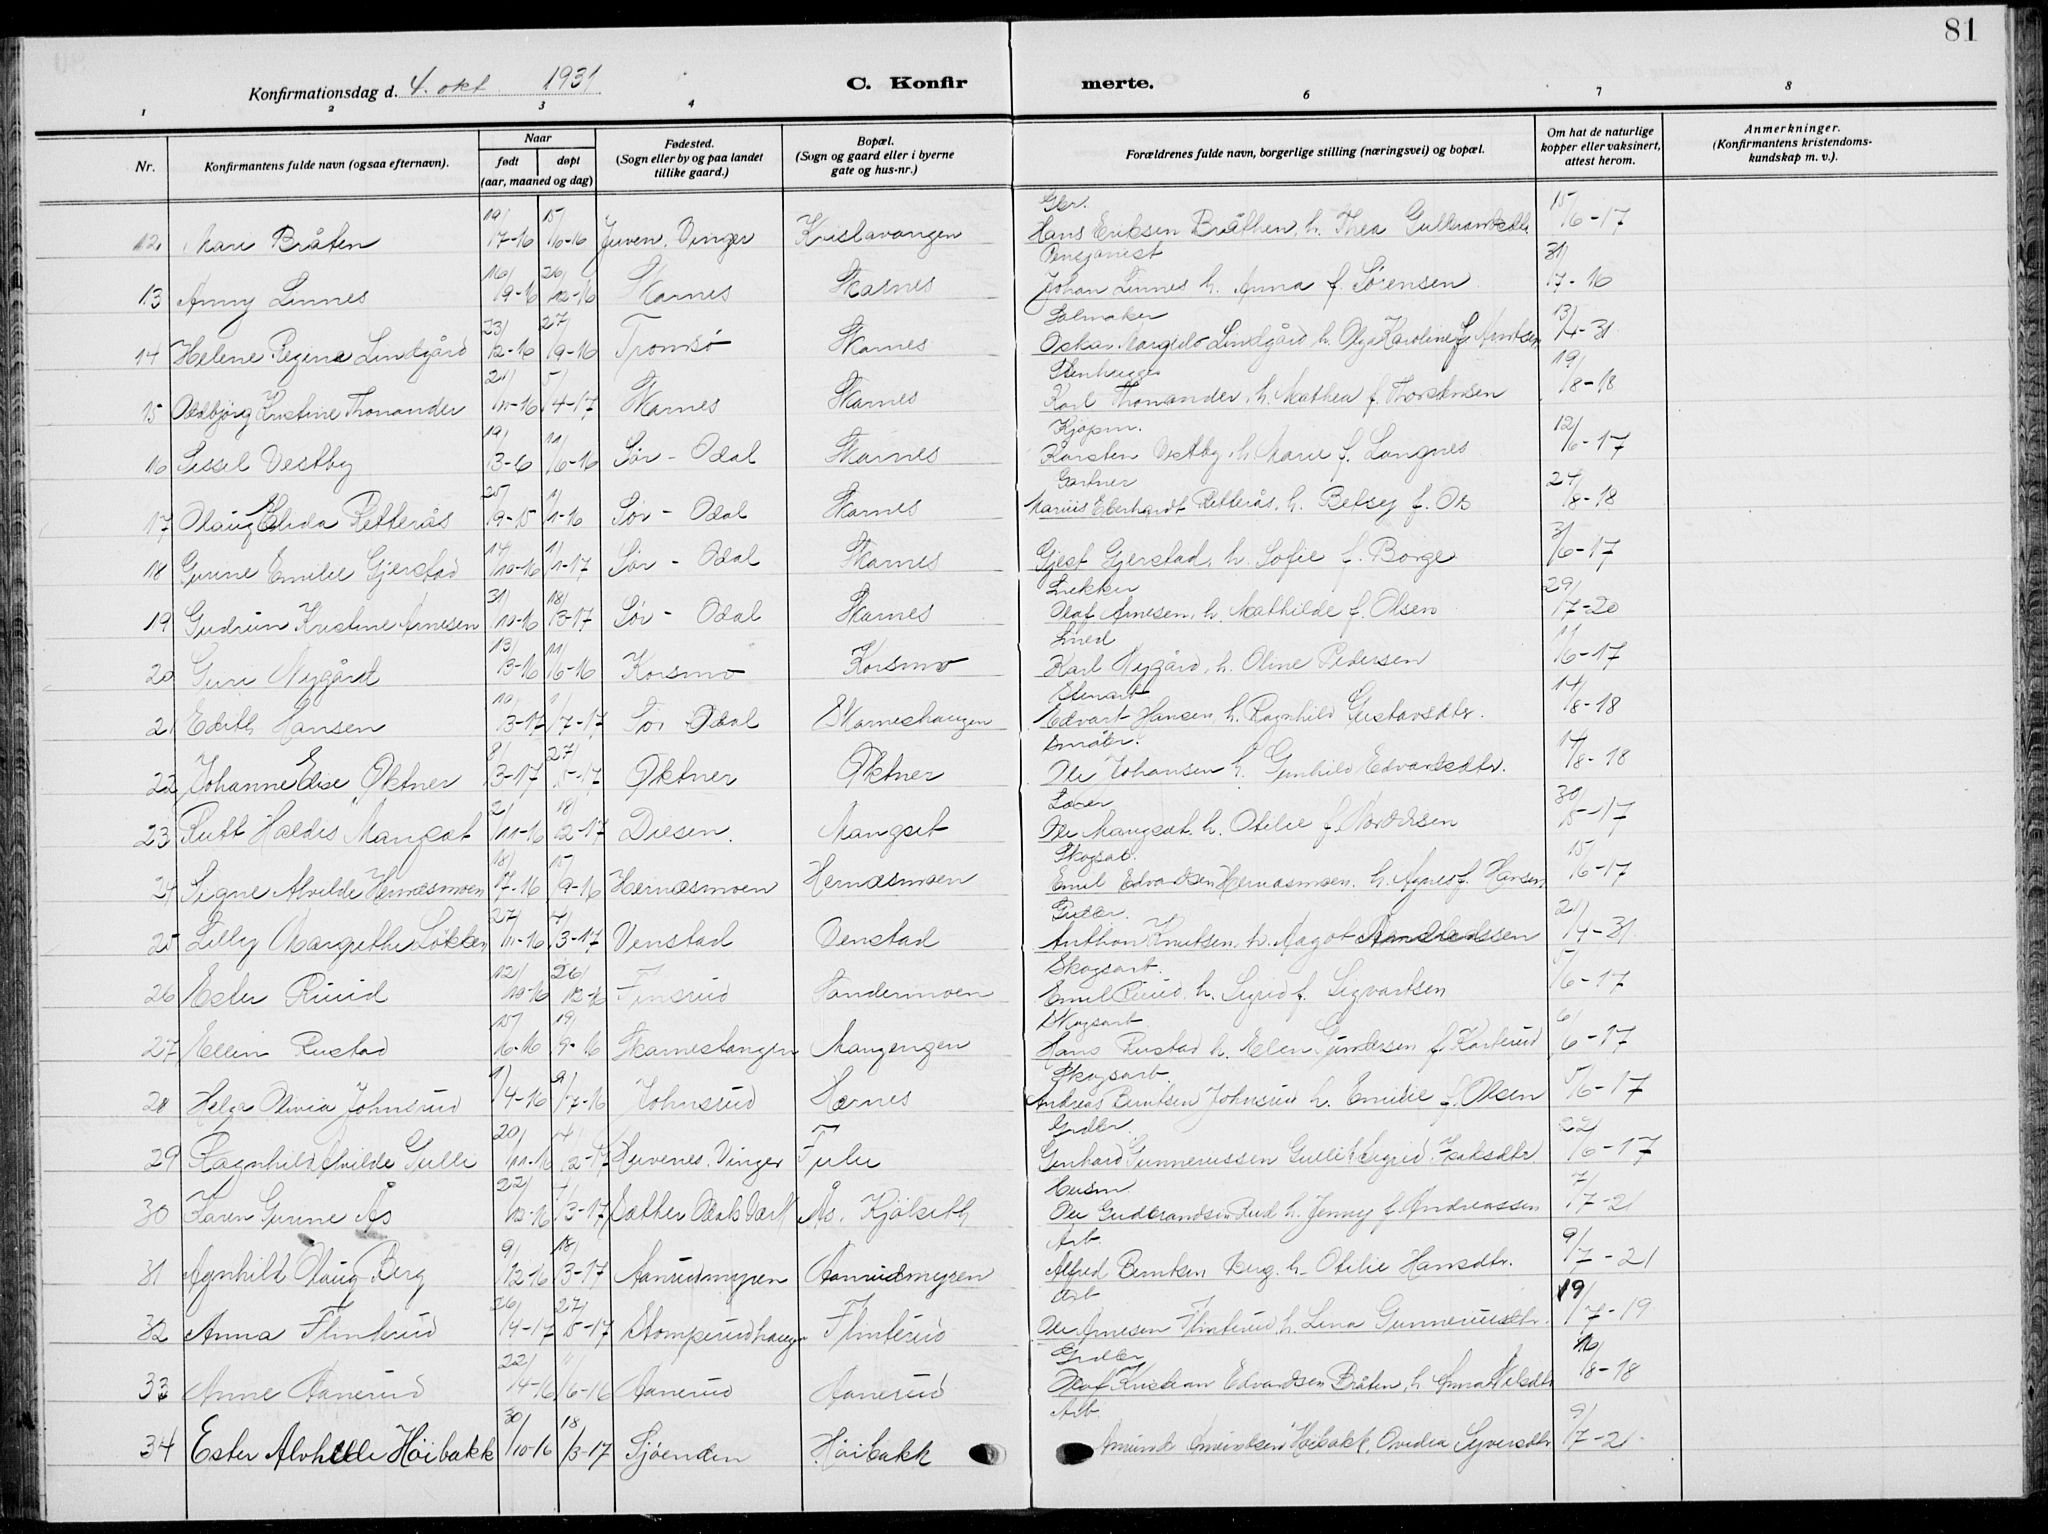 81
Konfirmationsdag d. 4. okt. 1931
C. Konfirmerte.
1 2 3 4 6 7 8
Nr.
Konfirmantens fulde navn (ogsaa efternavn).
Naar
født
døpt
(aar, maaned og dag)
Fødested.
(Sogn eller by og paa landet
tillike gaard.)
Bopæl.
(Sogn og gaard eller i byerne
gate og hus-nr.)
Forældrenes fulde navn, borgerlige stilling (næringsvei) og bopæl.
Om hat de naturlige
kopper eller vaksinert,
attest herom.
Anmerkninger.
(Konfirmantens kristendoms-
kundskap m. v.).
Gbr.
12. Mari Bråten 19/7-16 15/10-16 Juven, Vinger Hans Eriksen Bråthen, h. Thea 15/6-17
Pensjonist
13 Anny Linnes 16/9-16 26/12-16 Skarnes Skarnes Johan Linnes h. Anna f. Sørensen 31/7-16
Salmaker
14 Helene Regine Lindgård 23/2-16 27/9-16 Tromsø Skarnes Oskar Lindgård h. Olga Karoline f. Arntsen 13/4-31
Stenhugger
15 Oddbjørg Kristine Thonander 21/10-16 5/4-17 Skarnes Skarnes Karl Thonander, h. Mathea f. Thorstensen 19/8-18
Kjøpm.
16 Sissel Vestby 19/3-16 11/6-16 Sør-Odal Skarnes Karsten Vestby h. Marie f. Langnes 12/6-17
Gartner
17 Olaug Retterås 25/9-15 1/1-16 Sør-Odal Skarnes Marius Eberhardt Retterås, h. Betsey f. Os 24/8-18
18 Gunne Emilie Gjerstad 14/10-16 1/1-17 Sør-Odal Skarnes Gjest Gjerstad, h. Sofie f. Borge 3/6-17
19 Gudrun Kristine Arnesen 31/10-16 18/3-17 Sør-Odal Skarnes Olaf Arnesen, h. Mathilde f. Olsen 29/7-20
Smed
20 Guri Nygård 13/3-16 11/6-16 Korsmo Korsmo Karl Nygård, h. Oline Pedersen 11/6-17
Stenarb.
21 Edith Hansen 10/3-17 1/7-17 Sør Odal Skarneshaugen Edvart Hansen, h. Ragnhild Gustavsdtr. 14/8-18
Småbr.
22 Johanne Elise Øktner 8/3-17 27/5-17 Øktner Øktner Ole Johansen h. Gunhild Edvardsdtr. 14/8-18
23 Rutt Haldis Mangset 2/11-16 18/2-17 Disen. Mangset Ole Mangset. h. Otilie f. 30/8-17
Skogsar.
24 Signe Alvilde Hernæsmoen 18/7-16 15/9-16 Hernæsmoen Hernæsmoen Emil Edvardsen Hernæsmoen. h. Agnes f. Hansen 15/6-17
Gudbr.
25 Lilly Margrethe Løkken 27/11-16 4/3-17 Venstad Venstad Anthon Knutsen, h. Magot 21/4-31
Skogsarb.
26 Ester Ruud 12/10-16 26/12-16 Finsrud Sandermoen Emil Ruud, h. Sigrid f. Sigvartsen 5/6-17
Skogsarb.
27 Ellin Rustad 15/6-16 19/9-16 Skarnestangen Mangengen Hans Rustad h. Elen Gundersen f. 6/6-17
Skogsarb.
28 Helga Olivia Johnsrud 1/4-16 9/7-16 Johnsrud Hernes Andreas Berntsen Johnsrud h. Emilie f. Olsen 5/6-17
Grdbr.
29 Ragnhild Alvilde Gulli 20/11-16 4/2-17 Vinger Fulu Gerhard Gunnerussen Gulli h. Sigrid Isaksdtr 22/6-17
Husm.
30 Karen Gunne Ås 22/12-16 4/3-17 Sætter Ås. Kjölseth Ole Gudbrandsen Rud h. Jenny f. Andreassen 7/7-21
Arb.
31 Agnhild Olaug Berg 9/12-16 18/3-17 Aanrudmyren Aanrudmyren Alfred Berntsen Berg. h. Otilie Hansdtr. 9/7-21
Arb
32 Anna Flinterud 26/4-17 27/5-17 Stomperudhaugen Flinterud Ole Arnesen Flinterud, h. Lina Gunnerusdtr. 19/7-19
Grdbr
33 Anne Aanerud 22/4-16 11/6-16 Aanerud Aanerud Olaf Kristian Edvardsen Bråten, h. Anna Nilsdtr 16/8-18
Arb.
34 Ester Alvhilde Höibakk 30/10-16 18/3-17 Sjöenden Höibakk Amund Amundsen Höibakk, Ovidia Syversdtr 9/7-21.